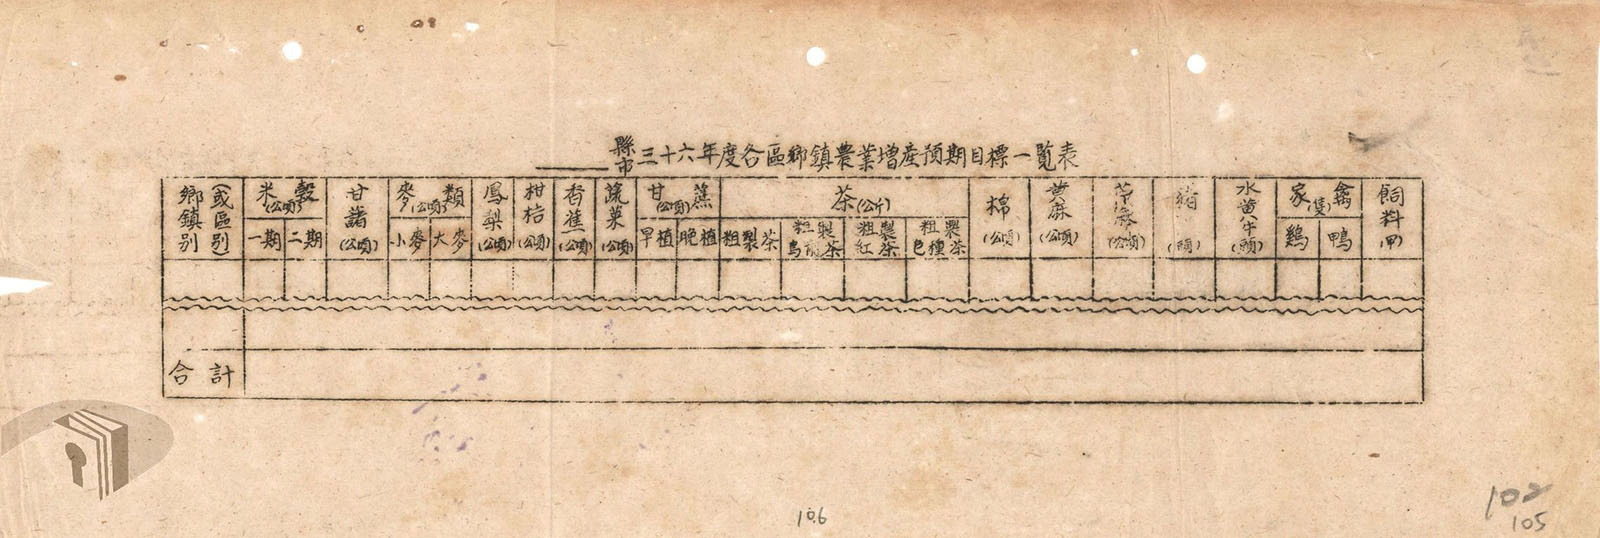 縣市三十六年度各區鄉鎮農業增產預期目標一覽表
鄉鎮別(或區別)
米穀(公頃)
一期 二期
甘藷(公頃)
麥類(公頃)
小麥 大麥
鳳梨(公頃)
柑桔(公頃)
香蕉(公頃)
蔬菜(公頃)
甘蔗(公頃)
早植 晚植
茶(公斤)
粗製茶
粗製烏龍茶
粗製紅茶
粗製包種茶
棉(公頃)
黃麻(公頃)
苧麻(公頃)
豬(頭)
水黃牛(頭)
家禽(隻)
鷄 鴨
飼料(甲)
合計
106
102
105